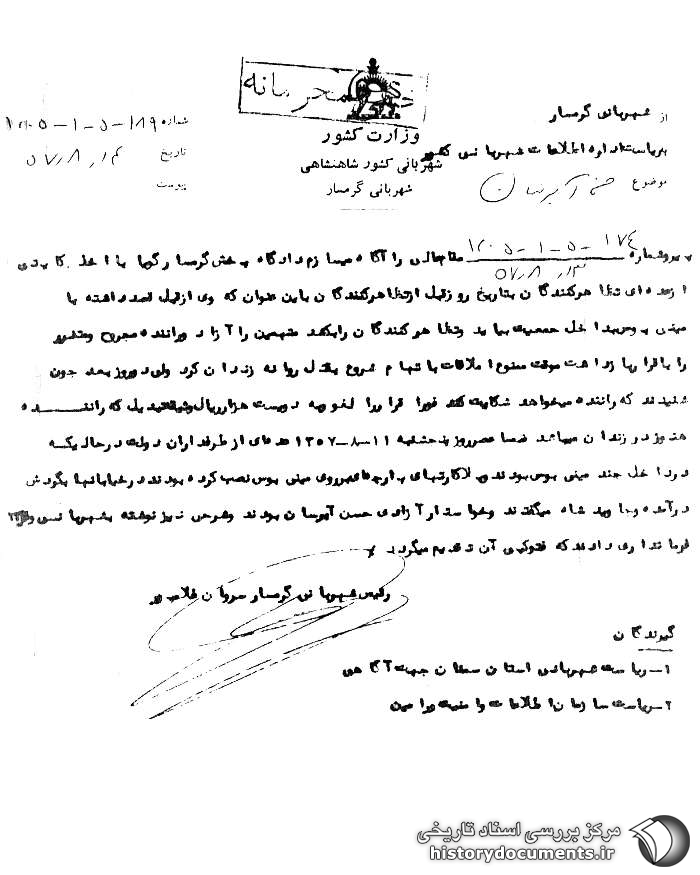 خیلی محرمانه
وزارت کشور
شهربانی کشور شاهنشاهی
شهربانی گرمسار
از شهربانی گرمسار
بریاست اداره اطلاعات شهربانی کشور
موضوع حسن آبرسان
شماره ۱۸۹-۵-۱-۱۲۰۵
تاریخ ۵۷٫۸٫۱۴
پیوست
پیروشماره ۱۷۴-۵-۱-۱۲۰۵
۵۷٫۸٫۱۳
مقامعالی را آگاه میسازم دادگاه بخش گرمسار گویا با اخذ
از عده ای تظاهرکنندگان بتاریخ روز قبل از تظاهرکنندگان باین عنوان که وی از قبل قصد داشته با
مینی بوس بداخل جمعیت بیاید وتظاهرکنندگان رابکشد متهمین را آزاد وراننده مجروح ومضروب
را باقرار بازداشت موقت ممنوع الملاقات با اتهام شروع بقتل روانه زندان کرد ولی دوروز بعد چون
شنیدند که راننده میخواهد شکایت کند فورا قرار را لغو وبه دویست هزارریال وثیقه تبدیل که راننده
هنوز در زندان میباشد ضمنا عصر روز پنجشنبه ۱۱-۸-۱۳۵۷ عده ای از طرفداران دولت در حالیکه
در داخل چند مینی بوس بودند و پلاکارتهای پارچه ای بر روی مینی بوس نصب کرده بودند در خیابانها بگردش
درآمده وجاوید شاه میگفتند وخواستار آزادی حسن آبرسان بودند وشرحی نیز نوشته بشهربانی و
فرمانداری دادند که فتوکپی آن تقدیم میگردد
رئیس شهربانی گرمسار سروان
گیرندگان
۱-ریاست شهربانی استان سمنان جهت آگاهی
۲-ریاست سازمان اطلاعات وامنیت ورامین
مرکز بررسی اسناد تاریخی
historydocuments.ir